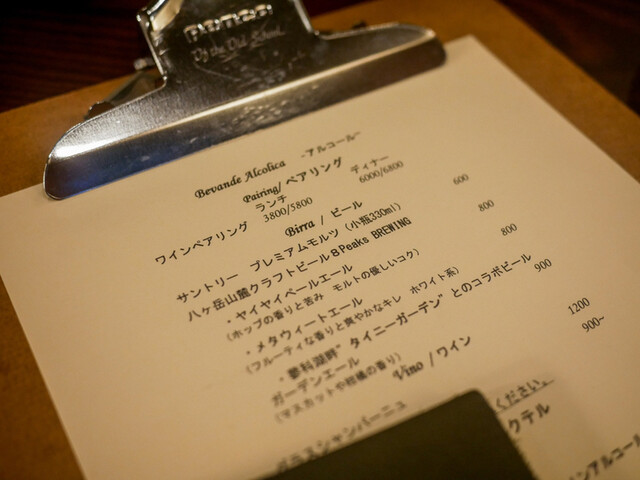 Of the Old School
Bevande Alcolica -アルコール-
Pairing/ペアリング
ランチ ディナー
ワインペアリング 3800/5800 6000/6800
Birra / ビール
サントリー プレミアムモルツ (小瓶330ml) 600
八ヶ岳山麓クラフトビール 8 Peaks BREWING
・ヤイヤイペールエール 800
(ホップの香りと苦み モルトの優しいコク)
・メタウィートエール 800
(フルーティな香りと爽やかなキレ ホワイト系)
・蓼科湖畔"タイニーガーデン"とのコラボビール
ガーデンエール 900
(マスカットや柑橘の香り)
Vino / ワイン
グラスシャンパーニュ 1200
900~
ください。
クテル
ンアルコール